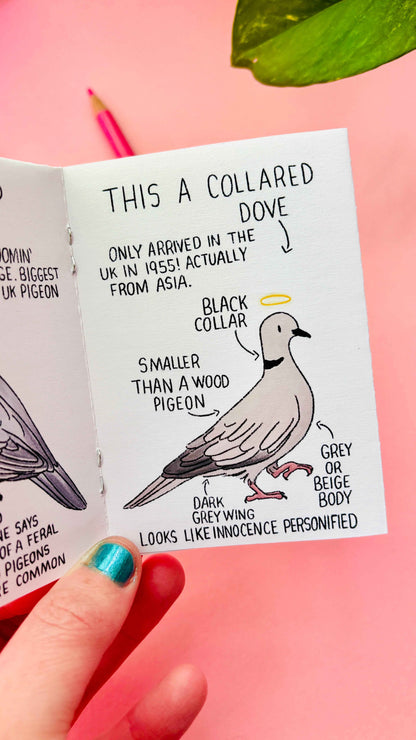 OOMIN'
GE. BIGGEST
UK PIGEON
NE SAYS
OF A FERAL
PIGEONS
RE COMMON
THIS A COLLARED
DOVE
ONLY ARRIVED IN THE
UK IN 1955! ACTUALLY
FROM ASIA.
BLACK
COLLAR
SMALLER
THAN A WOOD
PIGEON
GREY
OR
BEIGE
BODY
DARK
GREY WING
LOOKS LIKE INNOCENCE PERSONIFIED